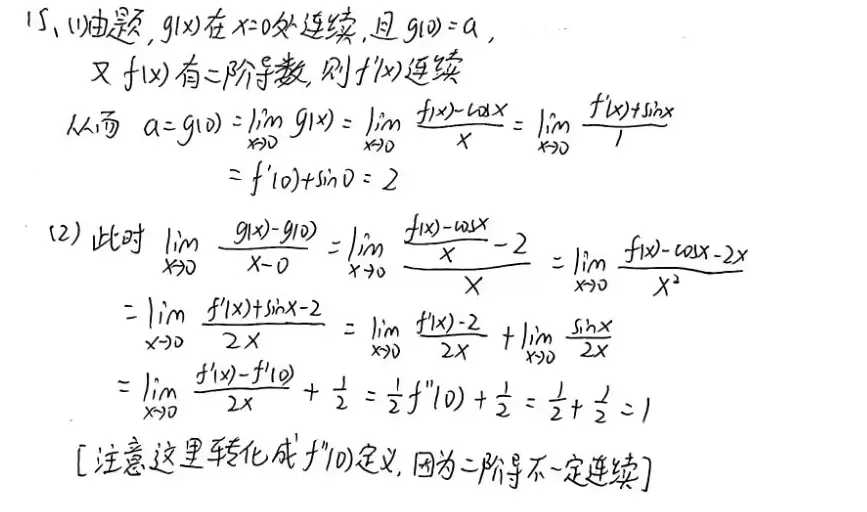 15、(1)由题, g(x)在x=0处连续,且g(0)=a,
又f(x)有二阶导数,则f'(x)连续
从而 a=g(0)=lim_{x→0} g(x)=lim_{x→0} (f(x)-cosx)/x=lim_{x→0} (f'(x)+sinx)/1
=f'(0)+sin0=2
(2)此时 lim_{x→0} (g(x)-g(0))/(x-0)=lim_{x→0} ((f(x)-cosx)/x-2)/x=lim_{x→0} (f(x)-cosx-2x)/x²
=lim_{x→0} (f'(x)+sinx-2)/2x=lim_{x→0} (f'(x)-2)/2x+lim_{x→0} sinx/2x
=lim_{x→0} (f'(x)-f'(0))/2x+1/2=1/2f''(0)+1/2=1/2+1/2=1
[注意这里转化成f''(0)定义,因为二阶导不一定连续]